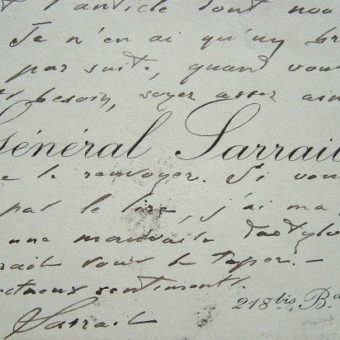 l'article dont nou
Je n'en ai qu'un br
par suite, quand vou
besoin, soyez assez aim
Général Sarrail
le renvoyer. Si vou
pas le lire, j'ai ma
une mauvaise dactylo
rait vous le taper. -
ectueux sentiments.
218 bis, Bd
Sarrail